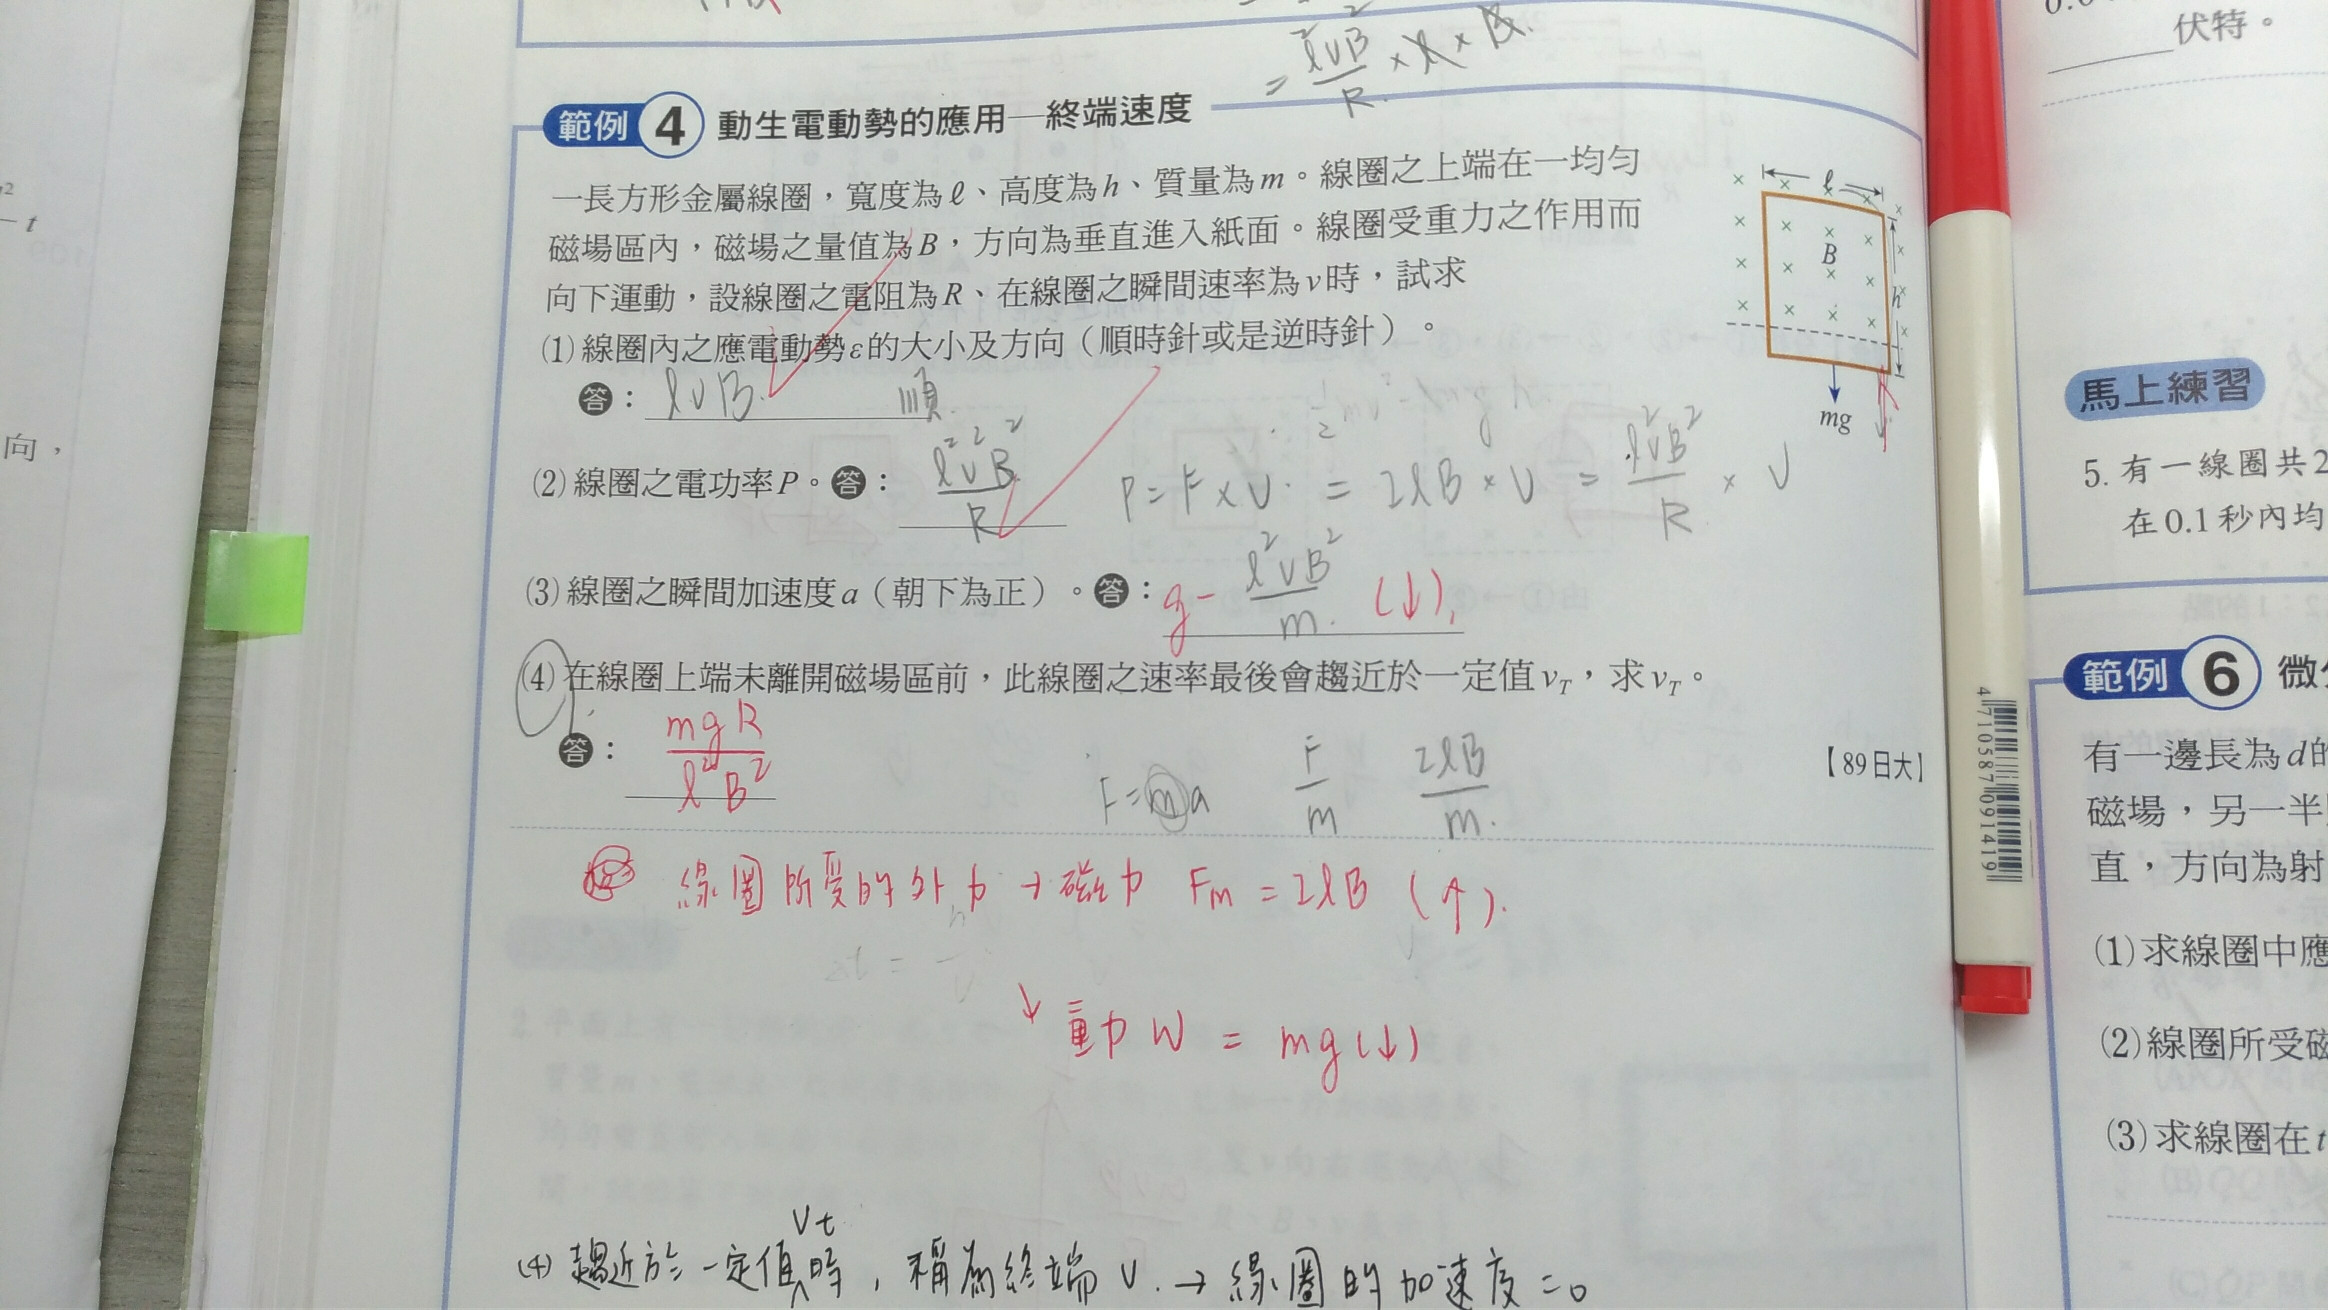 = ℓ²vB²/R × ℓ × B.
範例 4 動生電動勢的應用—終端速度
一長方形金屬線圈，寬度為ℓ、高度為h、質量為m。線圈之上端在一均勻
磁場區內，磁場之量值為B，方向為垂直進入紙面。線圈受重力之作用而
向下運動，設線圈之電阻為R、在線圈之瞬間速率為v時，試求
(1)線圈內之應電動勢ε的大小及方向（順時針或是逆時針）。
答： ℓvB. 順
(2)線圈之電功率P。答： ℓ²v²B²/R P=F×v. = IℓB×v = ℓ²vB²/R × v
(3)線圈之瞬間加速度a（朝下為正）。答： g - ℓ²vB²/m. (↓),
(4)在線圈上端未離開磁場區前，此線圈之速率最後會趨近於一定值vT，求vT。
答： mgR/ℓ²B²
F=ma F/m IℓB/m.
【89日大】
線圈所受的外力 → 磁力 Fm = IℓB (↑).
↓ 重力 W = mg(↓)
(4) 趨近於一定值Vt時，稱為終端V. → 線圈的加速度=0
ℓ
B
h
mg
4710587091419
伏特。
馬上練習
5. 有一線圈共2
在0.1秒內均
範例 6 微
有一邊長為d的
磁場，另一半
直，方向為射
(1)求線圈中應
(2)線圈所受磁
(3)求線圈在t
t
向，